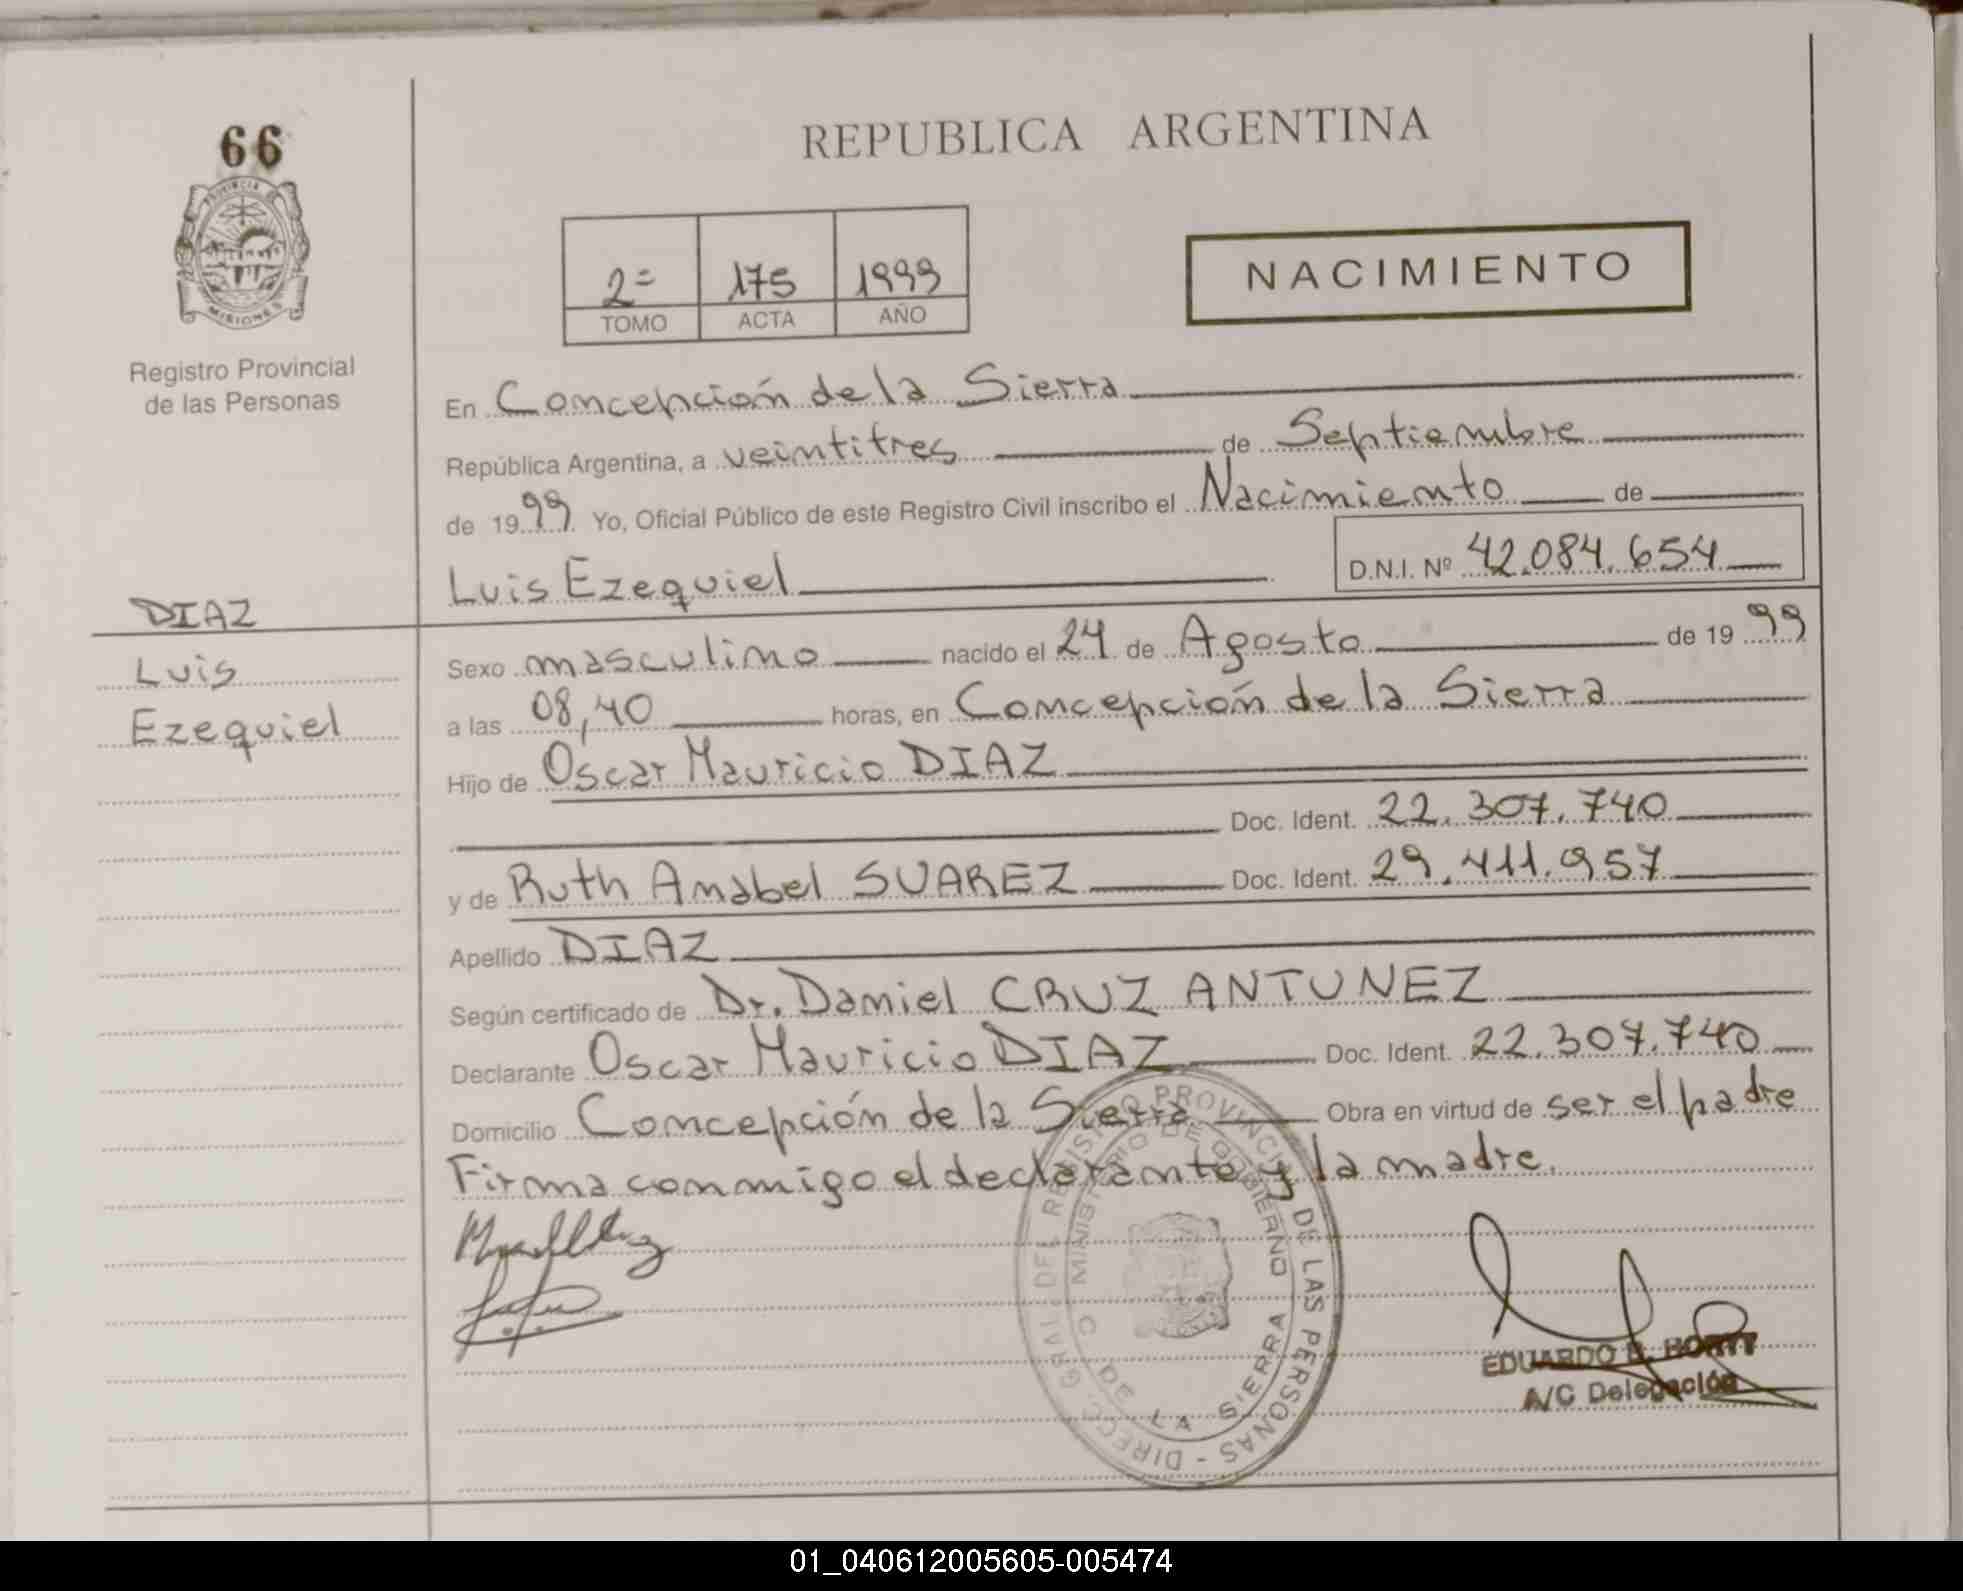 66
PROVINCIA DE
MISIONES
Registro Provincial
de las Personas
DIAZ
Luis
Ezequiel
REPUBLICA ARGENTINA
2= 175 1999
TOMO ACTA AÑO
NACIMIENTO
En Concepción de la Sierra
República Argentina, a veintitres de Septiembre
de 1999 Yo, Oficial Público de este Registro Civil inscribo el Nacimiento de
Luis Ezequiel D.N.I. Nº 42.084.654
Sexo masculino nacido el 24 de Agosto de 1999
a las 08,40 horas, en Concepción de la Sierra
Hijo de Oscar Mauricio DIAZ
Doc. Ident. 22.307.740
y de Ruth Anabel SUAREZ Doc. Ident. 29.411.957
Apellido DIAZ
Según certificado de Dr. Daniel CRUZ ANTUNEZ
Declarante Oscar Mauricio DIAZ Doc. Ident. 22.307.740
Domicilio Concepción de la Sierra Obra en virtud de ser el padre
Firma conmigo el declarante y la madre.
DIREC. GRAL. DEL REGISTRO PROVINCIAL DE LAS PERSONAS -
MINISTERIO DE GOBIERNO
DE LA SIERRA
EDUARDO
A/C Delegación
01_040612005605-005474